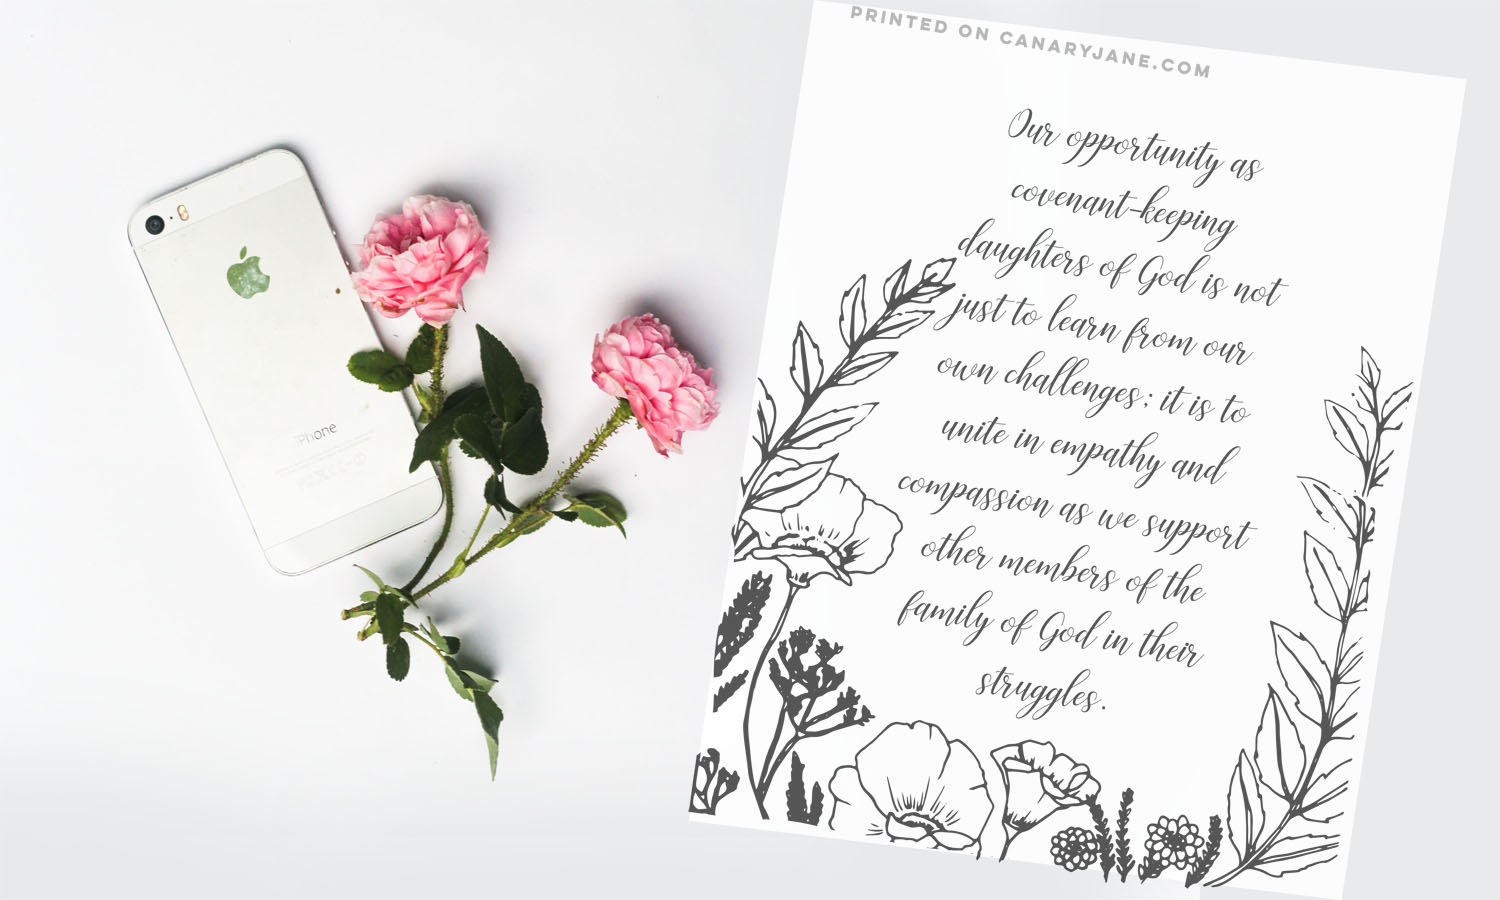 PRINTED ON CANARYJANE.COM
Our opportunity as
covenant-keeping
daughters of God is not
just to learn from our
own challenges; it is to
unite in empathy and
compassion as we support
other members of the
family of God in their
struggles.
iPhone